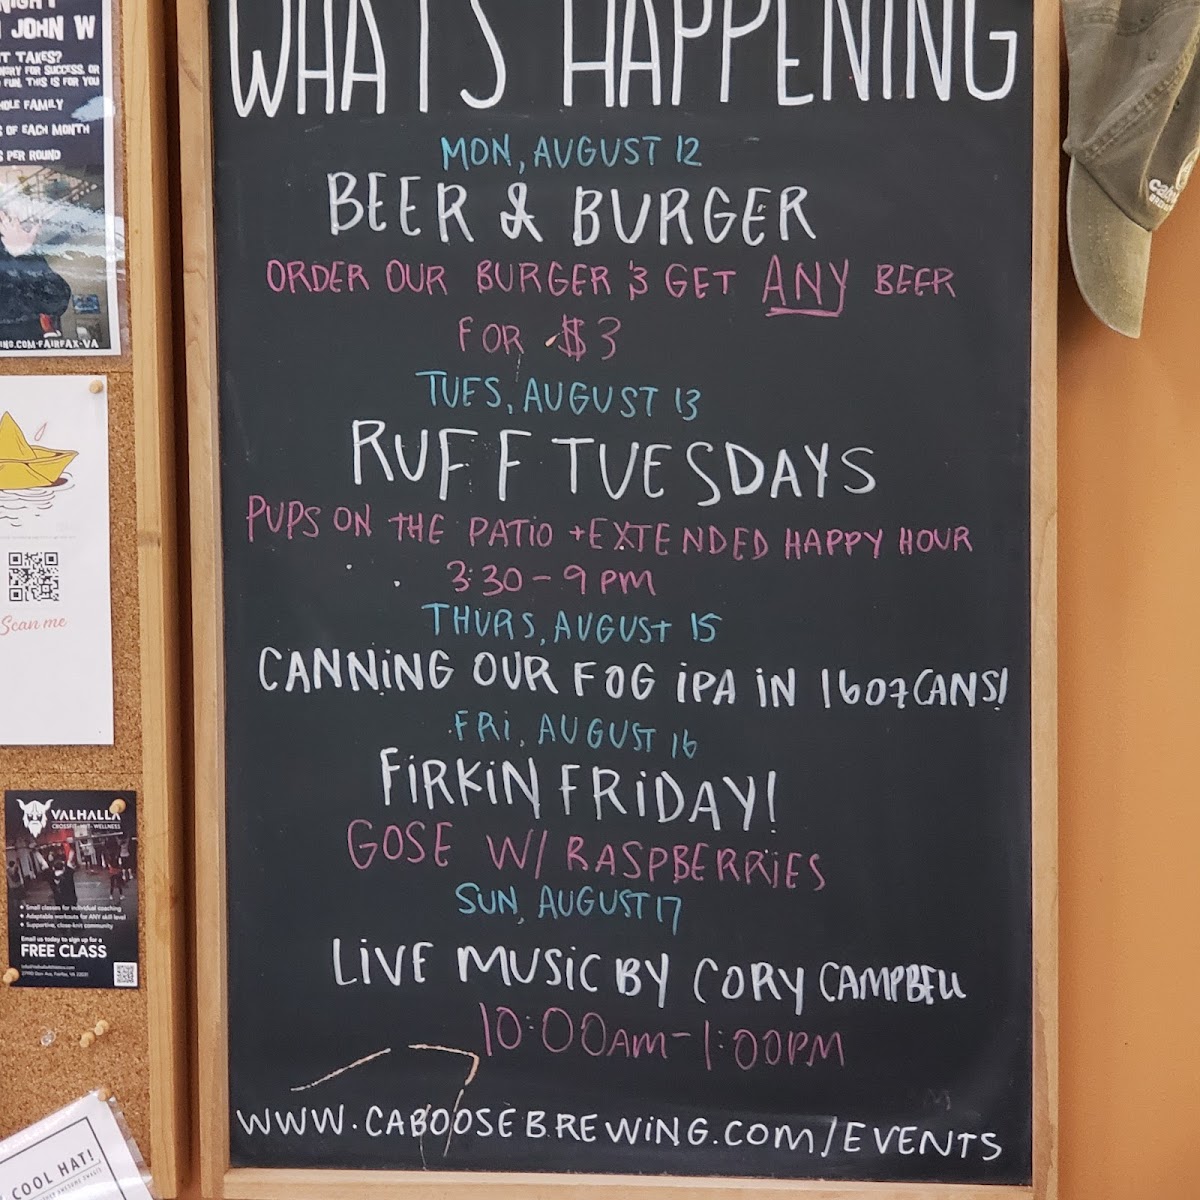 JOHN W
T TAKES?
FUN, THIS IS FOR YOU
OLE FAMILY
S OF EACH MONTH
S PER ROUND
Scan me
VALHALLA
CROSSFIT - HIIT - WELLNESS
Small classes for individual coaching
Adaptable workouts for ANY skill level
Supportive, close-knit community
Email us today to sign up for a
FREE CLASS
COOL HAT!
WHAT'S HAPPENING
MON, AUGUST 12
BEER & BURGER
ORDER OUR BURGER & GET ANY BEER
FOR $3
TUES, AUGUST 13
RUFF TUESDAYS
PUPS ON THE PATIO + EXTENDED HAPPY HOUR
3:30 - 9 PM
THURS, AUGUST 15
CANNING OUR FOG IPA IN 16OZ CANS!
FRI, AUGUST 16
FIRKIN FRIDAY!
GOSE W/ RASPBERRIES
SUN, AUGUST 17
LIVE MUSIC BY CORY CAMPBELL
10:00AM - 1:00PM
WWW.CABOOSEBREWING.COM/EVENTS